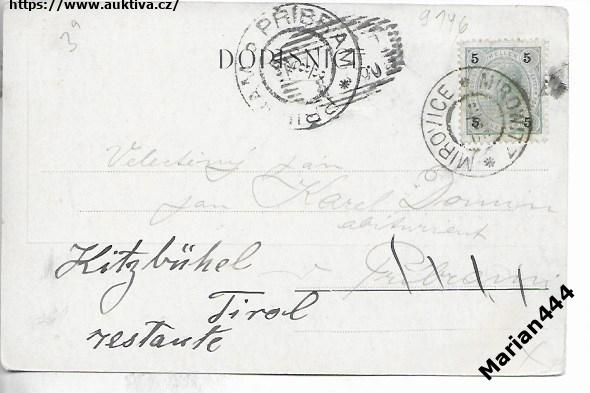 https://www.auktiva.cz/
39
9146
PŘÍBRAM * PŘIBRAM
DOPISNICE
5 5
5 5
MIROWITZ * MIROVICE
Velectěný pán
pan Karel Domin
abiturient
v Příbrami
Kitzbühel
Tirol
restante
Marian444